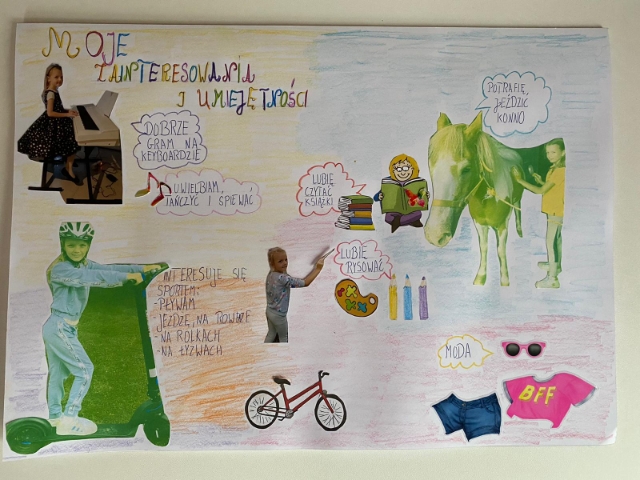 MOJE
ZAINTERESOWANIA
I UMIEJĘTNOŚCI
DOBRZE
GRAM NA
KEYBOARDZIE
UWIELBIAM,
TAŃCZYĆ I ŚPIEWAĆ
LUBIĘ
CZYTAĆ
KSIĄŻKI
POTRAFIĘ,
JEŹDZIĆ
KONNO
LUBIĘ
RYSOWAĆ
INTERESUJE SIĘ
SPORTEM:
-PŁYWAM
-JEŻDŻĘ, NA ROWERZE
-NA ROLKACH
-NA ŁYŻWACH
MODA
BFF